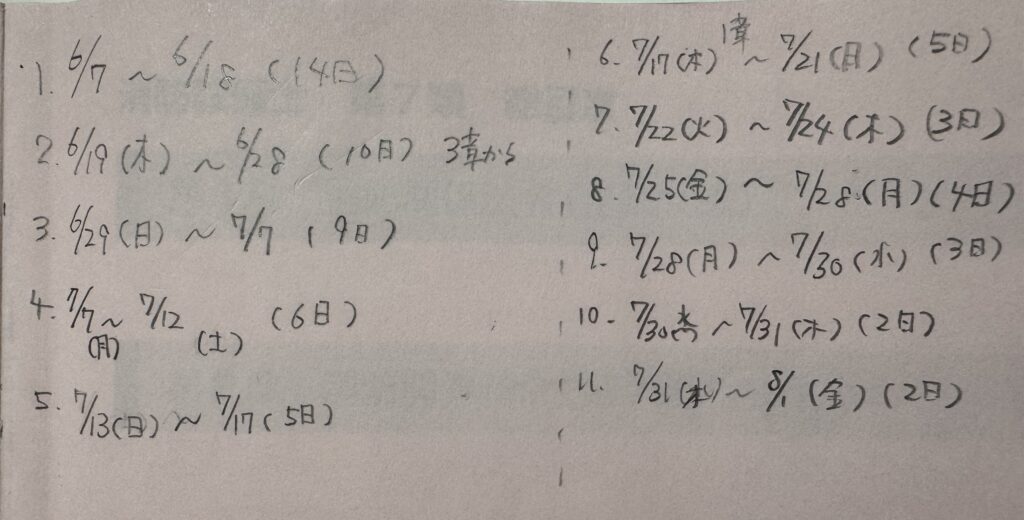 1. 6/7 ~ 6/18 (14日)
2. 6/19(木) ~ 6/28 (10日) 3章から
3. 6/29(日) ~ 7/7 (9日)
4. 7/7 ~ 7/12 (6日)
(月) (土)
5. 7/13(日) ~ 7/17(5日)
1章
6. 7/17(木) ~ 7/21(月) (5日)
7. 7/22(火) ~ 7/24(木) (3日)
8. 7/25(金) ~ 7/28(月)(4日)
9. 7/28(月) ~ 7/30(水) (3日)
10. 7/30 水 ~ 7/31(木)(2日)
11. 7/31(木) ~ 8/1 (金)(2日)